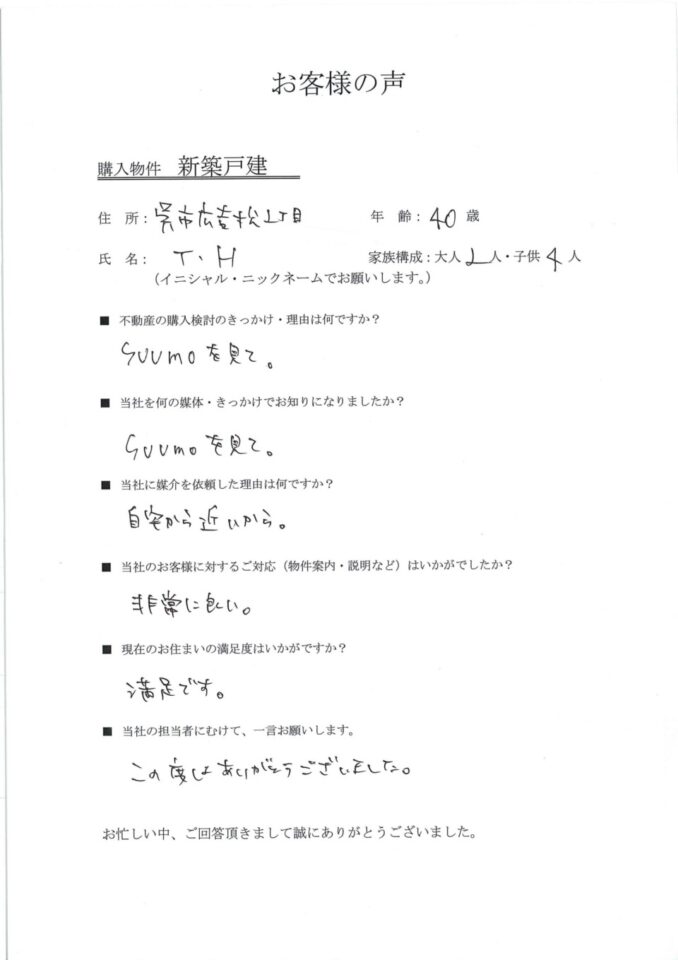 お客様の声
購入物件 新築戸建
住 所：呉市広吉松2丁目 年 齢：40 歳
氏 名： T・H 家族構成：大人2人・子供4人
（イニシャル・ニックネームでお願いします。）
■ 不動産の購入検討のきっかけ・理由は何ですか？
SUUMOを見て。
■ 当社を何の媒体・きっかけでお知りになりましたか？
SUUMOを見て。
■ 当社に媒介を依頼した理由は何ですか？
自宅から近いから。
■ 当社のお客様に対するご対応（物件案内・説明など）はいかがでしたか？
非常に良い。
■ 現在のお住まいの満足度はいかがですか？
満足です。
■ 当社の担当者にむけて、一言お願いします。
この度はありがとうございました。
お忙しい中、ご回答頂きまして誠にありがとうございました。